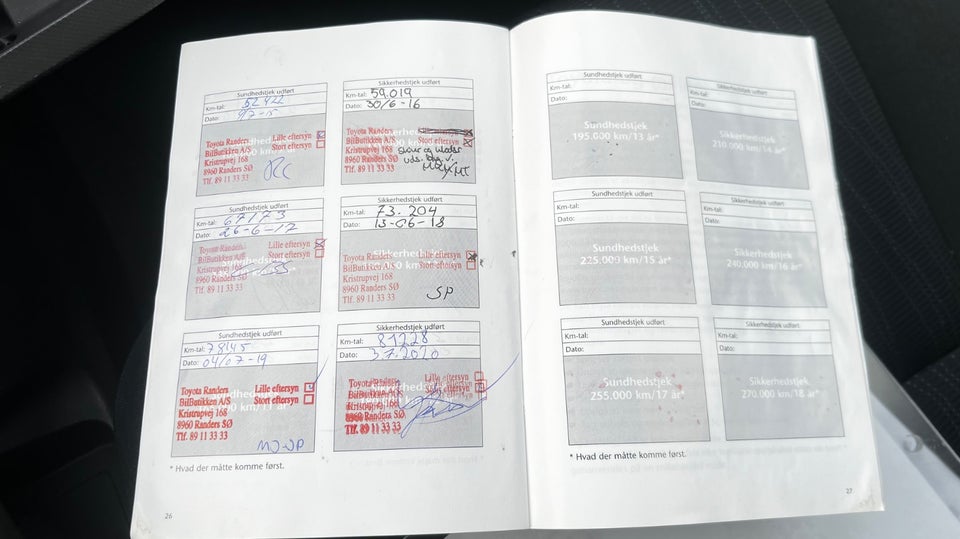 Sundhedstjek udført
Km-tal: 52422
Dato:
Toyota Randers
BilButikken A/S
Kristrupvej 168
8960 Randers SØ
Tlf. 89 11 33 33
Lille eftersyn
Stort eftersyn
Sikkerhedstjek udført
Km-tal: 59.019
Dato: 30/6-16
Toyota Randers
BilButikken A/S
Kristrupvej 168
8960 Randers SØ
Tlf. 89 11 33 33
Stort eftersyn
Sundhedstjek udført
Km-tal: 67173
Dato: 26-6-17
Toyota Randers
BilButikken A/S
Kristrupvej 168
8960 Randers SØ
Tlf. 89 11 33 33
Lille eftersyn
Stort eftersyn
Sikkerhedstjek udført
Km-tal: 73.204
Dato: 13-06-18
Toyota Randers
BilButikken A/S
Kristrupvej 168
8960 Randers SØ
Tlf. 89 11 33 33
Lille eftersyn
Stort eftersyn
SP
Sundhedstjek udført
Km-tal: 78145
Dato: 04/07-19
Toyota Randers
BilButikken A/S
Kristrupvej 168
8960 Randers SØ
Tlf. 89 11 33 33
Lille eftersyn
Stort eftersyn
Sikkerhedstjek udført
Km-tal: 81228
Dato: 3.7.2020
Toyota Randers
BilButikken A/S
Kristrupvej 168
8960 Randers SØ
Tlf. 89 11 33 33
Lille eftersyn
Stort eftersyn
* Hvad der måtte komme først.
26
Sundhedstjek udført
Km-tal:
Dato:
Sundhedstjek
195.000 km/13 år*
Sikkerhedstjek udført
Km-tal:
Dato:
Sikkerhedstjek
210.000 km/14 år*
Sundhedstjek udført
Km-tal:
Dato:
Sundhedstjek
225.000 km/15 år*
Sikkerhedstjek udført
Km-tal:
Dato:
Sikkerhedstjek
240.000 km/16 år*
Sundhedstjek udført
Km-tal:
Dato:
Sundhedstjek
255.000 km/17 år*
Sikkerhedstjek udført
Km-tal:
Dato:
Sikkerhedstjek
270.000 km/18 år*
* Hvad der måtte komme først.
27